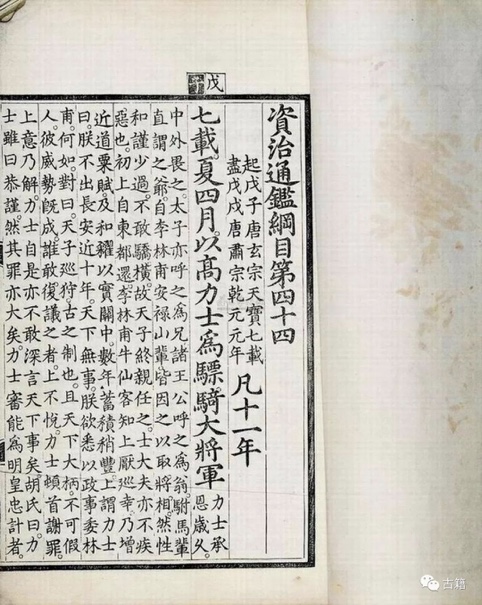 戊
資治通鑑綱目第四十四
起戊子唐玄宗天寶七載
盡戊戌唐肅宗乾元元年
凡十一年
七載夏四月以高力士爲驃騎大將軍
力士承
恩歲久
中外畏之太子亦呼之爲兄諸王公呼之爲翁駙馬輩
直謂之爺自李林甫安祿山輩皆因之以取將相然性
和謹少過不敢驕橫故天子終親任之士大夫亦不疾
惡也初上自東都還李林甫牛仙客知上厭巡幸乃增
近道粟賦及和糴以實關中數年蓄積稍豐上謂力士
曰朕不出長安近十年天下無事朕欲悉以政事委林
甫何如對曰天子巡狩古之制也且天下大柄不可假
人彼威勢旣成誰敢復議之者上不悅力士頓首謝罪
上意乃解力士自是亦不敢深言天下事矣胡氏曰力
士雖曰恭謹然其罪亦大矣力士審能爲明皇忠計者
古籍